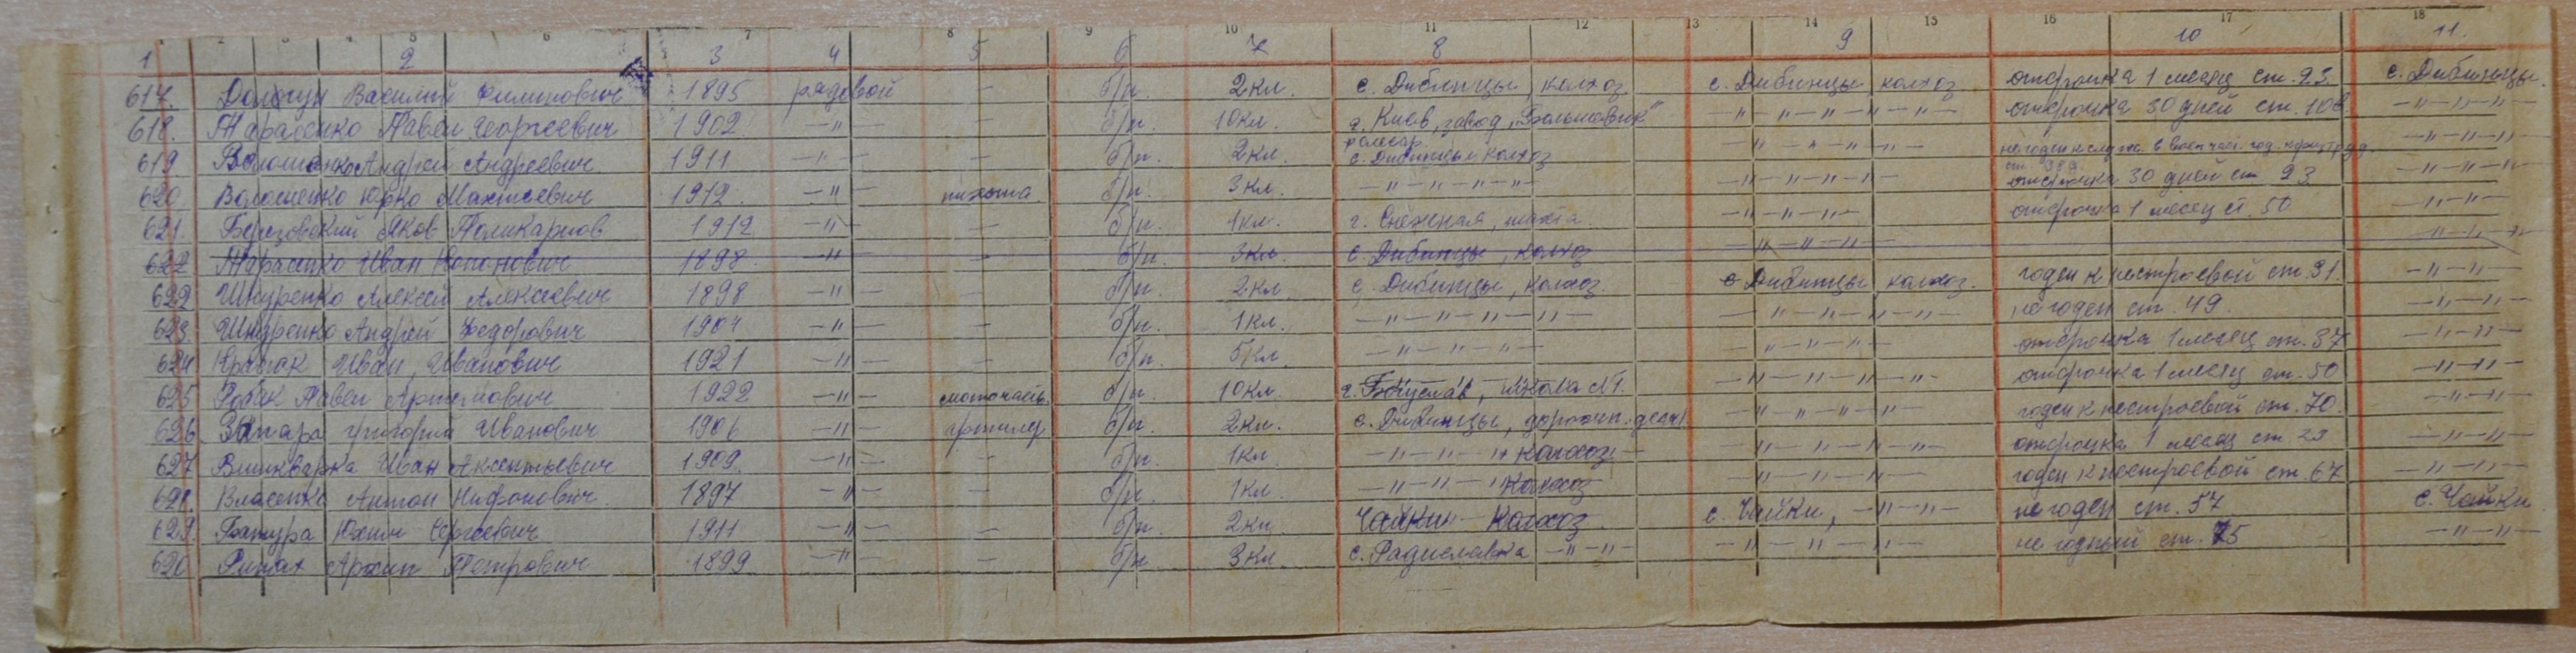 2 3 4 5 6 7 8 9 10 11 12 13 14 15 16 17 18
1 2 3 4 5 6 7 8 9 10 11.
617. Василий Филипович 1895 рядовой — б/п. 2 кл. с. Дибинцы, колхоз с. Дибинцы, колхоз отсрочка 1 месяц ст. 93. с. Дибинцы.
618. Тарасенко Павел Георгиевич 1902 —"— — б/п. 10 кл. г. Киев, завод „Большовик" —"—"—"—"— отсрочка 30 дней ст. 10в —"—"—
619 Андрей Андреевич 1911 —"— — б/п. 2 кл. с. Дибинцы колхоз —"—"—"—"— —"—"—
620 Волошенко Юрко 1912. —"— пихота б/п. 3 кл. —"—"—"—"— —"—"—"—"— отсрочка 30 дней ст 93 —"—"—
621. Березовский Яков Поликарпов 1912 —"— — б/п. 1 кл. г. Снежная, шахта —"—"—"— отсрочка 1 месец ст. 50 —"—"—
622 Тарасенко Иван Кононович 1898. —"— — б/п. 3 кл. с. Дибинцы, колхоз —"—"—"— —"—"—
622 Шнуренко Алексей Алексеевич 1898 —"— — б/п. 2 кл с. Дибинцы, колхоз с Дибинцы, колхоз. годен к нестроевой ст. 31. —"—"—
623. Шнуренко Андрей Федорович 1904 —"— — б/п. 1 кл. —"—"—"—"— —"—"—"—"— не годен ст. 49. —"—"—
624 Иван Иванович 1921 —"— — б/п. 5 кл —"—"—"— —"—"—"— отсрочка 1 месец ст. 37 —"—"—
625 Павел Артемович 1922 —"— моточасть. б/п. 10 кл. г. Богуслав, школа №1. —"—"—"—"— отсрочка 1 месяц ст. 50 —"—"—
626 Григорий Иванович 1906 —"— артилер б/п. 2 кл. с. Дибинцы, —"—"—"—"— годен к нестроевой ст. 70. —"—"—
627 Вишкварка Иван Аксентьевич 1909. —"— — б/п. 1 кл —"—"—"— колхоз —"—"—"—"— отсрочка 1 месец ст 29 —"—"—
628. Власенко Антон Нифонович. 1897 —"— — б/п. 1 кл. —"—"—"— Колхоз —"—"—"—"— годен к нестроевой ст. 67 —"—"—
629. Батура Юхим Сергеевич 1911 —"— — б/п. 2 кл. Чайки Колхоз с. Чайки, —"—"— не годен ст. 57 с. Чайки
620 Архип Петрович 1899 —"— — б/п 3 кл. с. Радиславка —"—"— —"—"—"—"— не годный ст. 75 —"—"—